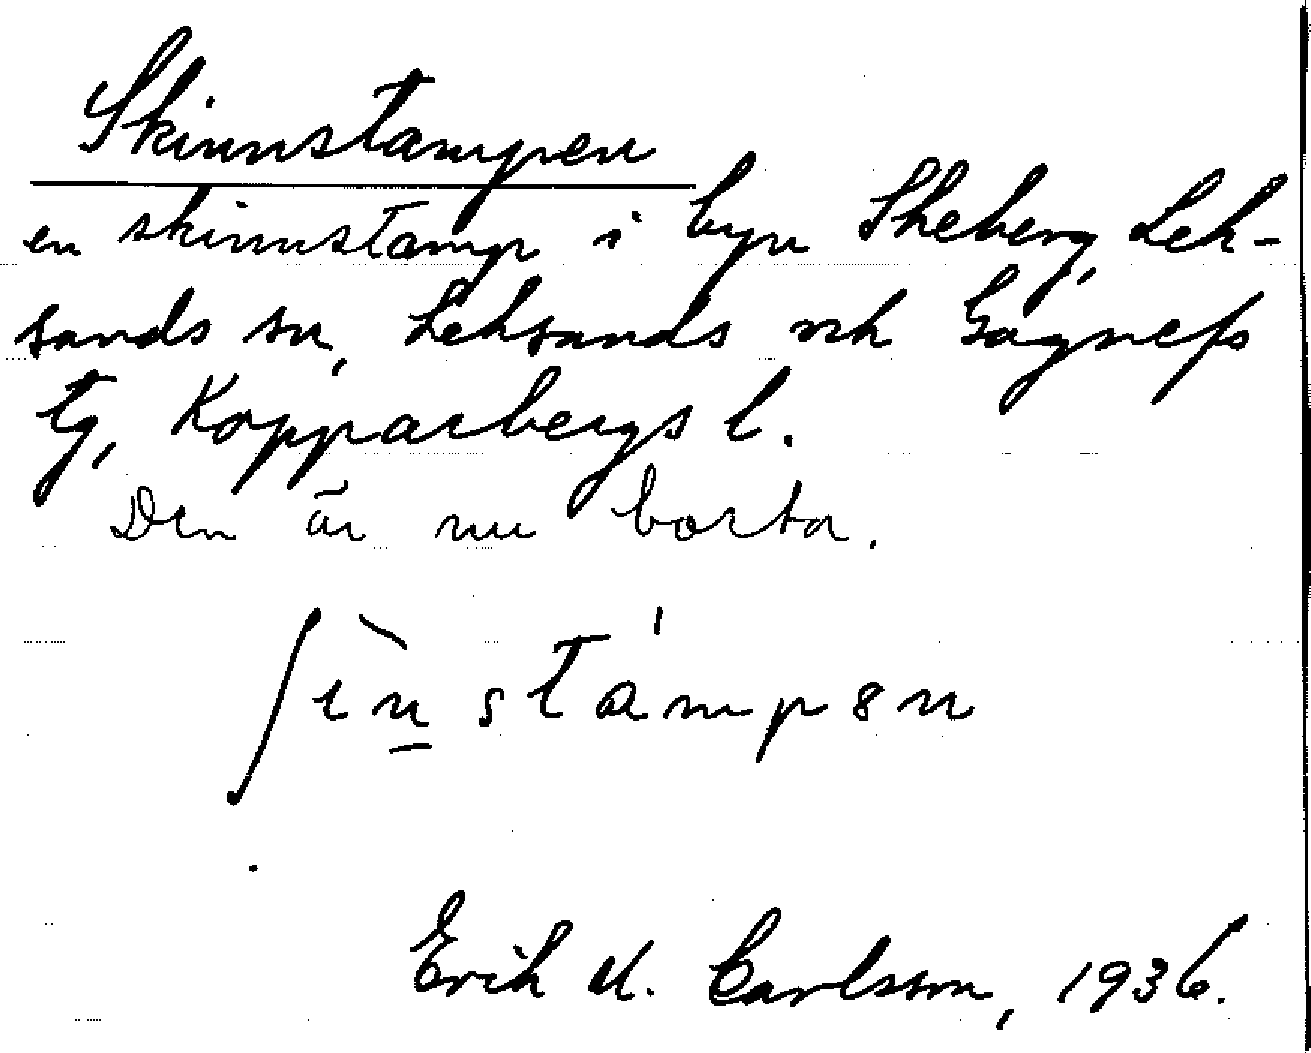 Skinnstampen
en skinnstamp i byn Skeberg, Lek-
sands sn, Leksands och Gagnefs
tg, Kopparbergs l.
Den är nu borta.
ʃìn̲stámpən
Erik M. Carlsson, 1936.